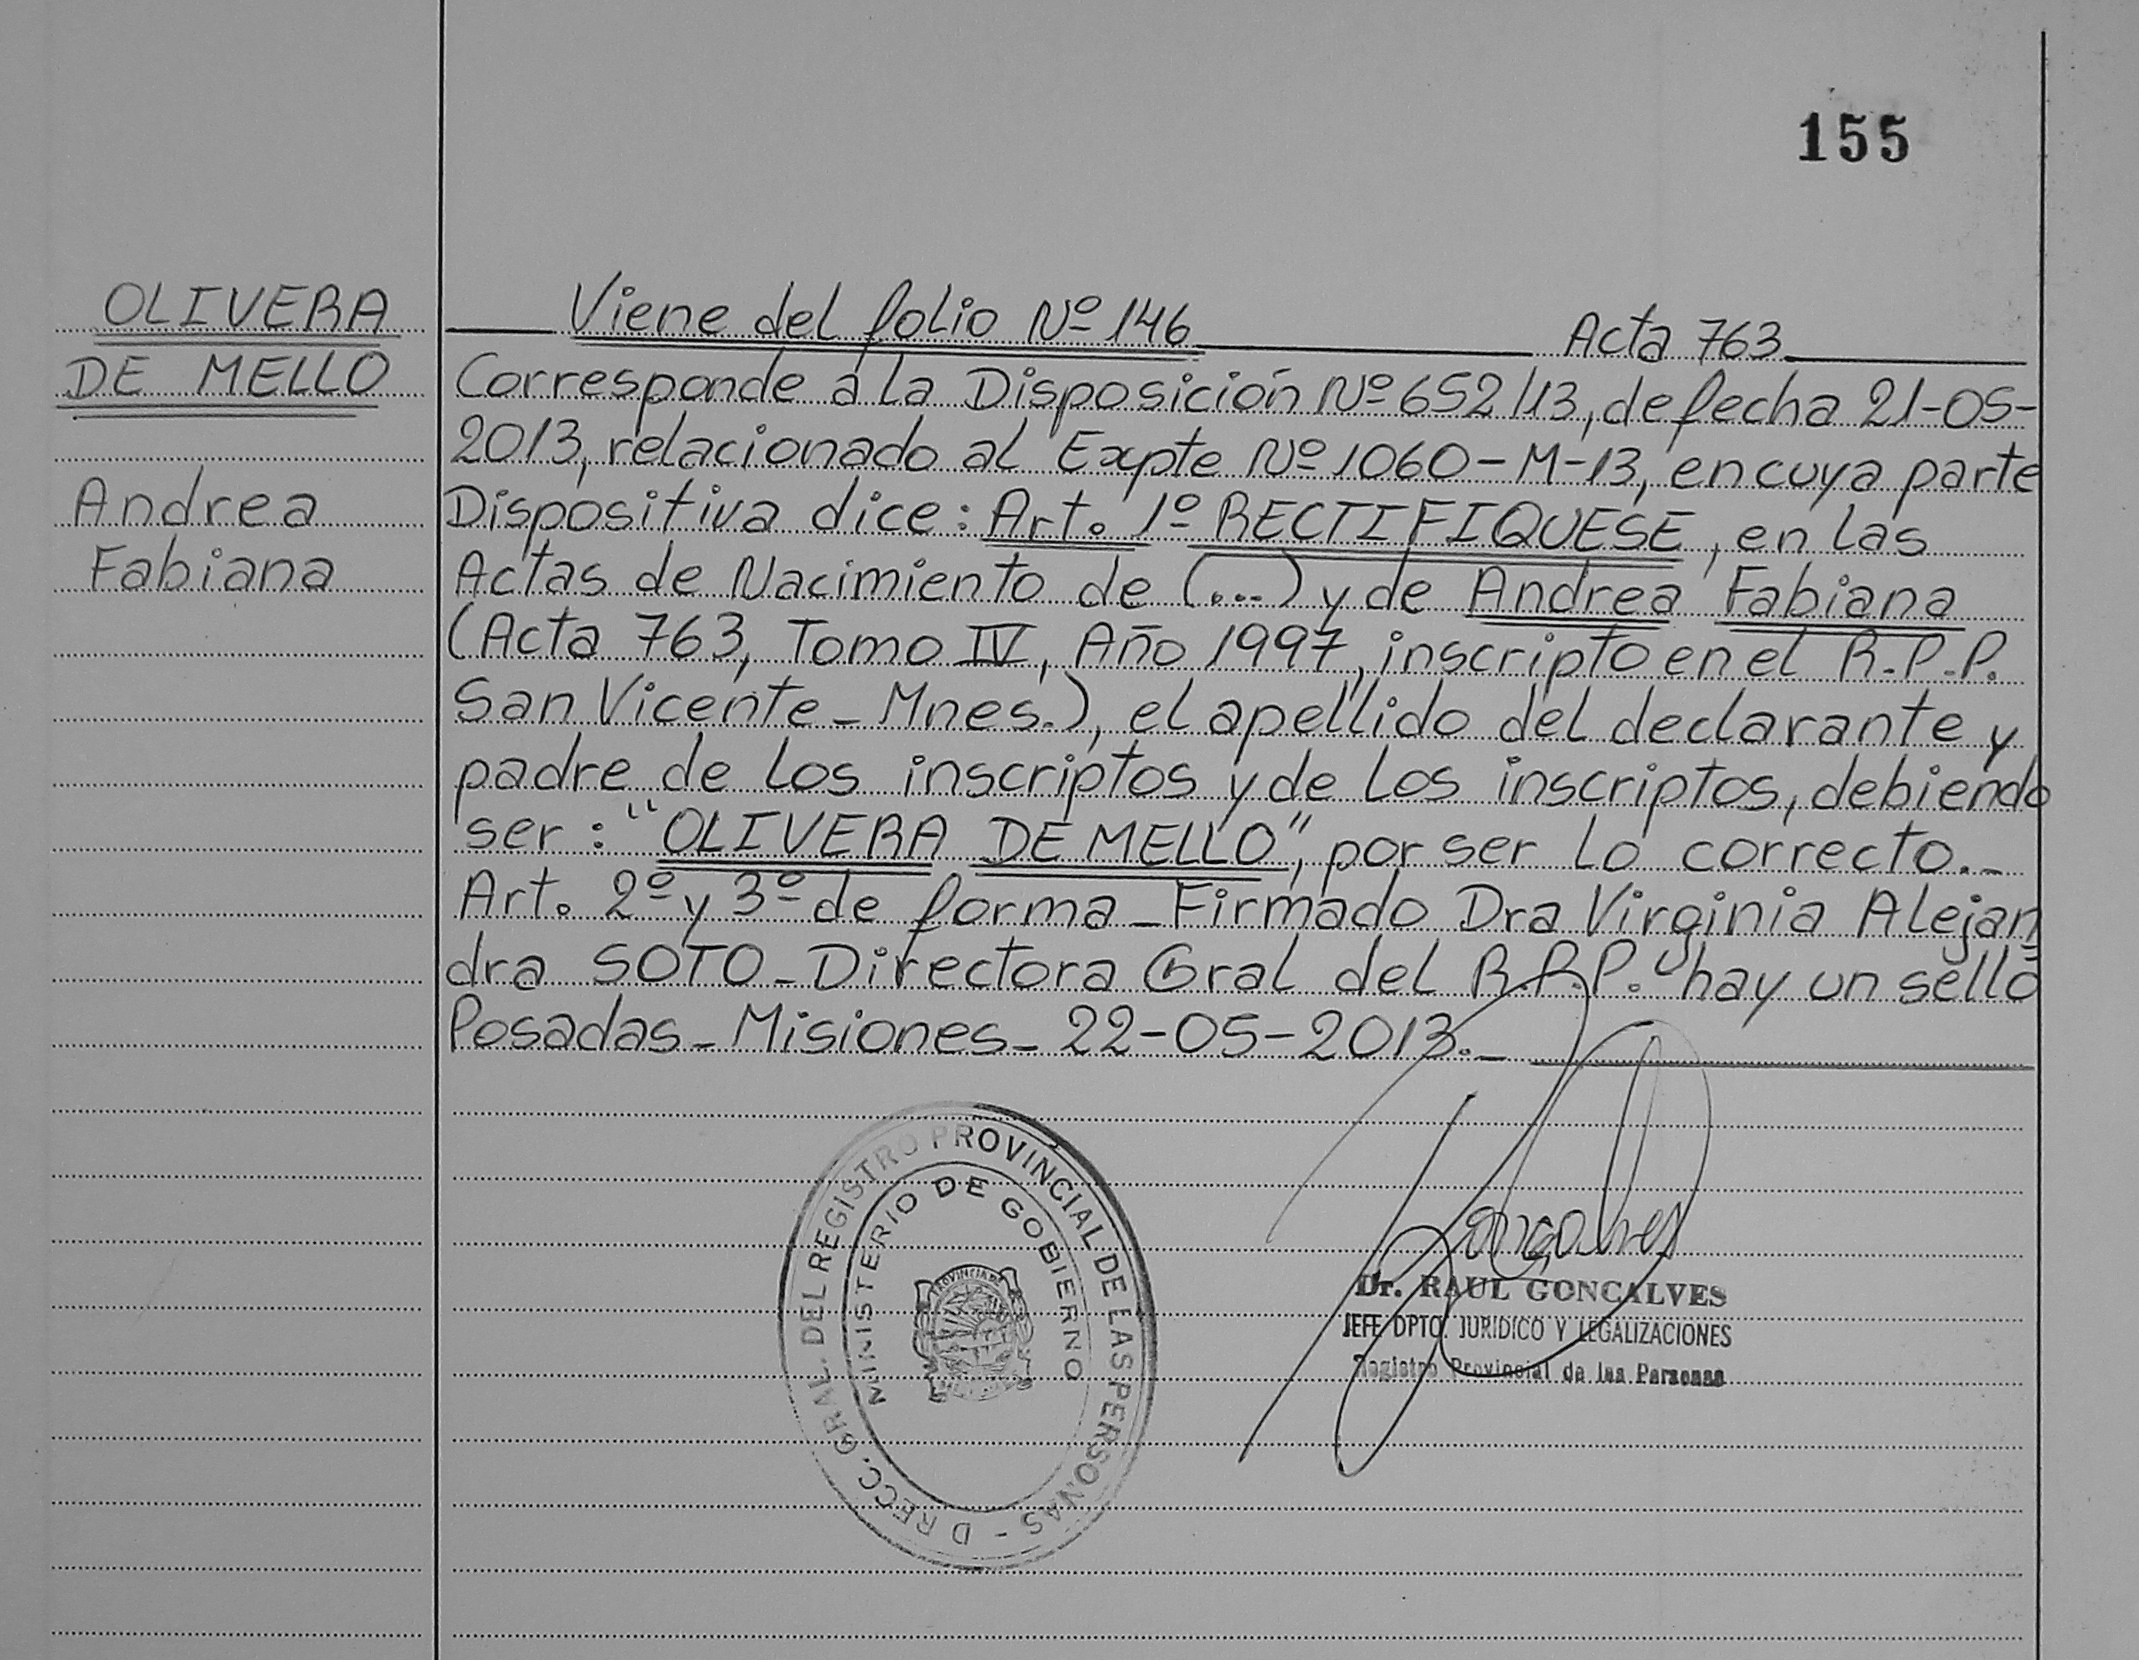 155
OLIVERA
DE MELLO
Andrea
Fabiana
Viene del folio Nº 146 Acta 763
Corresponde a la Disposición Nº 652/13, de fecha 21-05-
2013, relacionado al Expte Nº 1060-M-13, en cuya parte
Dispositiva dice: Art. 1º RECTIFIQUESE, en las
Actas de Nacimiento de (...) y de Andrea Fabiana
(Acta 763, Tomo IV, Año 1997, inscripto en el R.P.P.
San Vicente - Mnes.), el apellido del declarante y
padre de los inscriptos y de los inscriptos, debiendo
ser: "OLIVERA DE MELLO", por ser lo correcto.-
Art. 2º y 3º de forma - Firmado Dra Virginia Alejan
dra SOTO - Directora Gral del R.P.P. "hay un sello
Posadas - Misiones - 22-05-2013.-
DIRECC. GRAL. DEL REGISTRO PROVINCIAL DE LAS PERSONAS -
MINISTERIO DE GOBIERNO
PROVINCIA DE
Goncalves
Dr. RAUL GONCALVES
JEFE DPTO. JURIDICO Y LEGALIZACIONES
Registro Provincial de las Personas